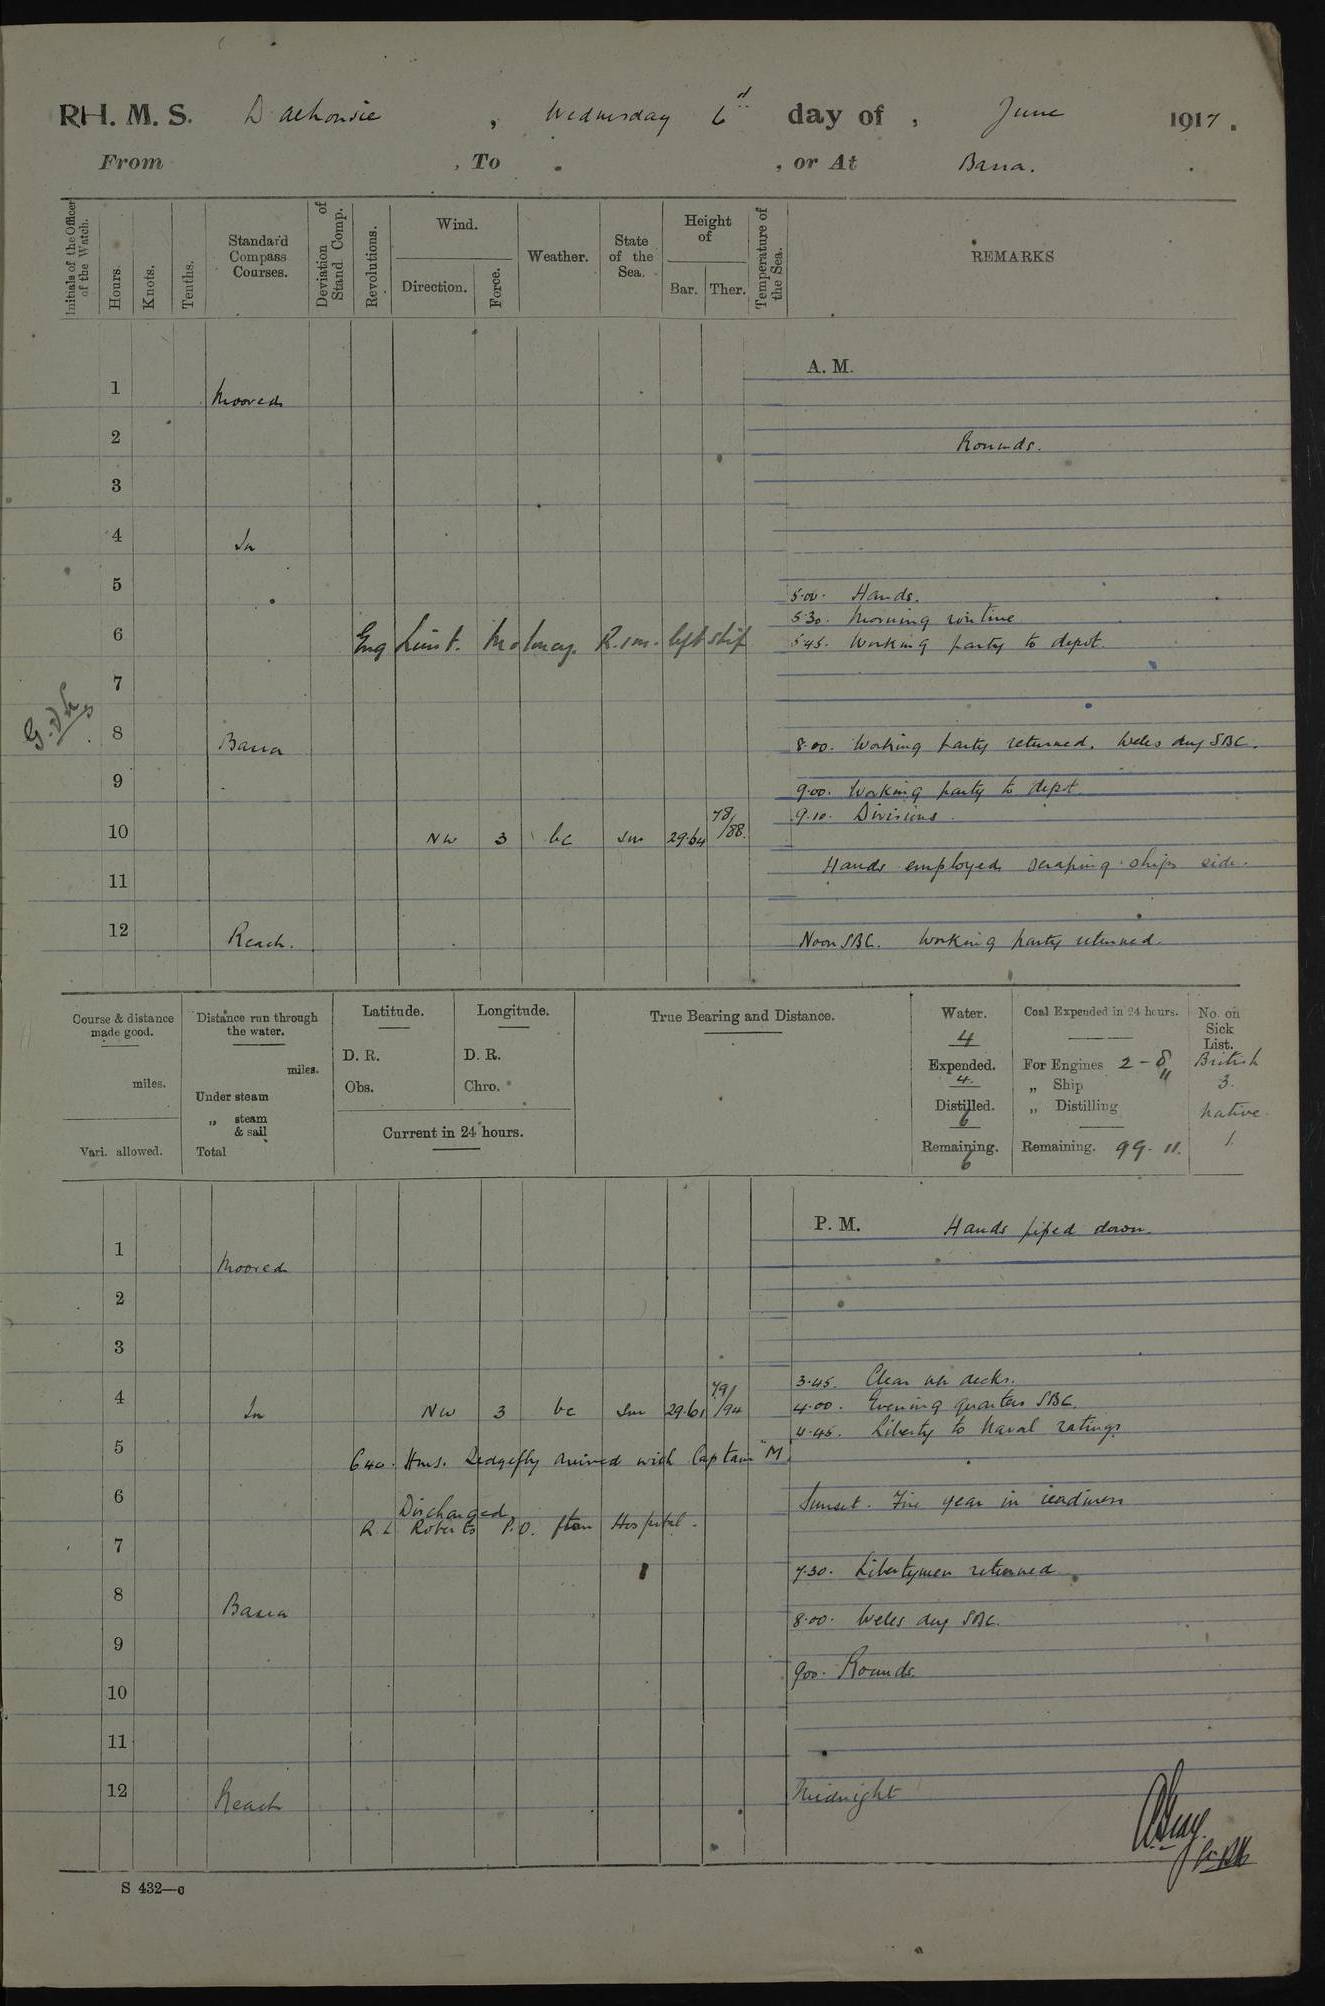 RH. M. S. Dalhousie , Wednesday 6th day of , June 1917.
From , To . , or At Basra.
Initials of the Officer of the Watch.
Hours.
Knots.
Tenths.
Standard Compass Courses.
Deviation of Stand. Comp.
Revolutions.
Wind.
Direction.
Force.
Weather.
State of the Sea.
Height of
Bar.
Ther.
Temperature of the Sea.
REMARKS
A. M.
1 Moored
2 Rounds.
3
4 In
5
5.00. Hands.
5.30. Morning routine
6 Eng Lieut. R.I.M. left ship 5.45. Working party to depot.
7
8 Basra 8.00. Working party returned. SBC.
9
9.00. Working party to depot.
9.10. Divisions.
10 NW 3 bc Sm 29.64 78/88.
Hands employed scraping ships side.
11
12 Reach. Noon SBC. Working party returned.
Course & distance made good.
miles.
Vari. allowed.
Distance run through the water.
miles.
Under steam
„ steam & sail
Total
Latitude.
D. R.
Obs.
Longitude.
D. R.
Chro.
Current in 24 hours.
True Bearing and Distance.
Water.
4
Expended.
4.
Distilled.
6
Remaining.
6
Coal Expended in 24 hours.
For Engines 2 - 8
„ Ship "
„ Distilling
Remaining. 99. 11.
No. on Sick List.
British
3.
Native.
1.
P. M. Hands piped down.
1 Moored
2
3
3.45. Clear up decks.
4 In NW 3 bc Sm 29.61 79/94 4.00. Evening quarters SBC.
4.45. Liberty to Naval ratings
5
6.40. Hms. Sedgefly arrived with Captain "M"
6 Sunset. Fire gear in readiness
Discharged
R. L. Roberts P.O. from Hospital.
7
7.30. Libertymen returned
8 Basra
8.00. SBC.
9
9.00. Rounds.
10
11
12 Reach Midnight
S 432—c